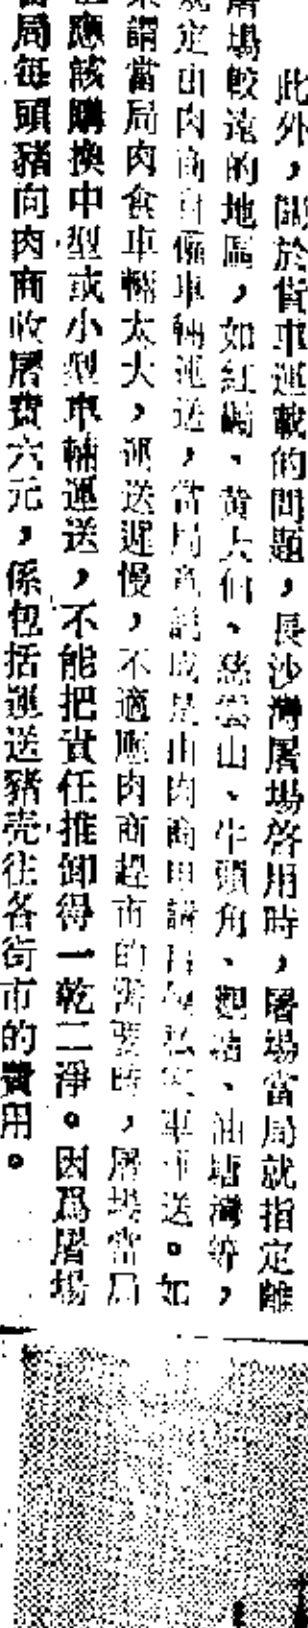 此外，關於貨車運載的問題，長沙灣屠場啓用時，屠場當局就指定離
屠場較遠的地區，如紅磡、黃大仙、慈雲山、牛頭角、觀塘、油塘灣等，
定由肉商自備車輛運送，當局
謂當局肉食車輛太大，運送遲慢，不適應肉商趕市的需要時，屠場當局
應該購換中型或小型車輛運送，不能把責任推卸得一乾二淨。因爲屠場
當局每頭豬向肉商收屠費六元，係包括運送豬壳往各街市的費用。